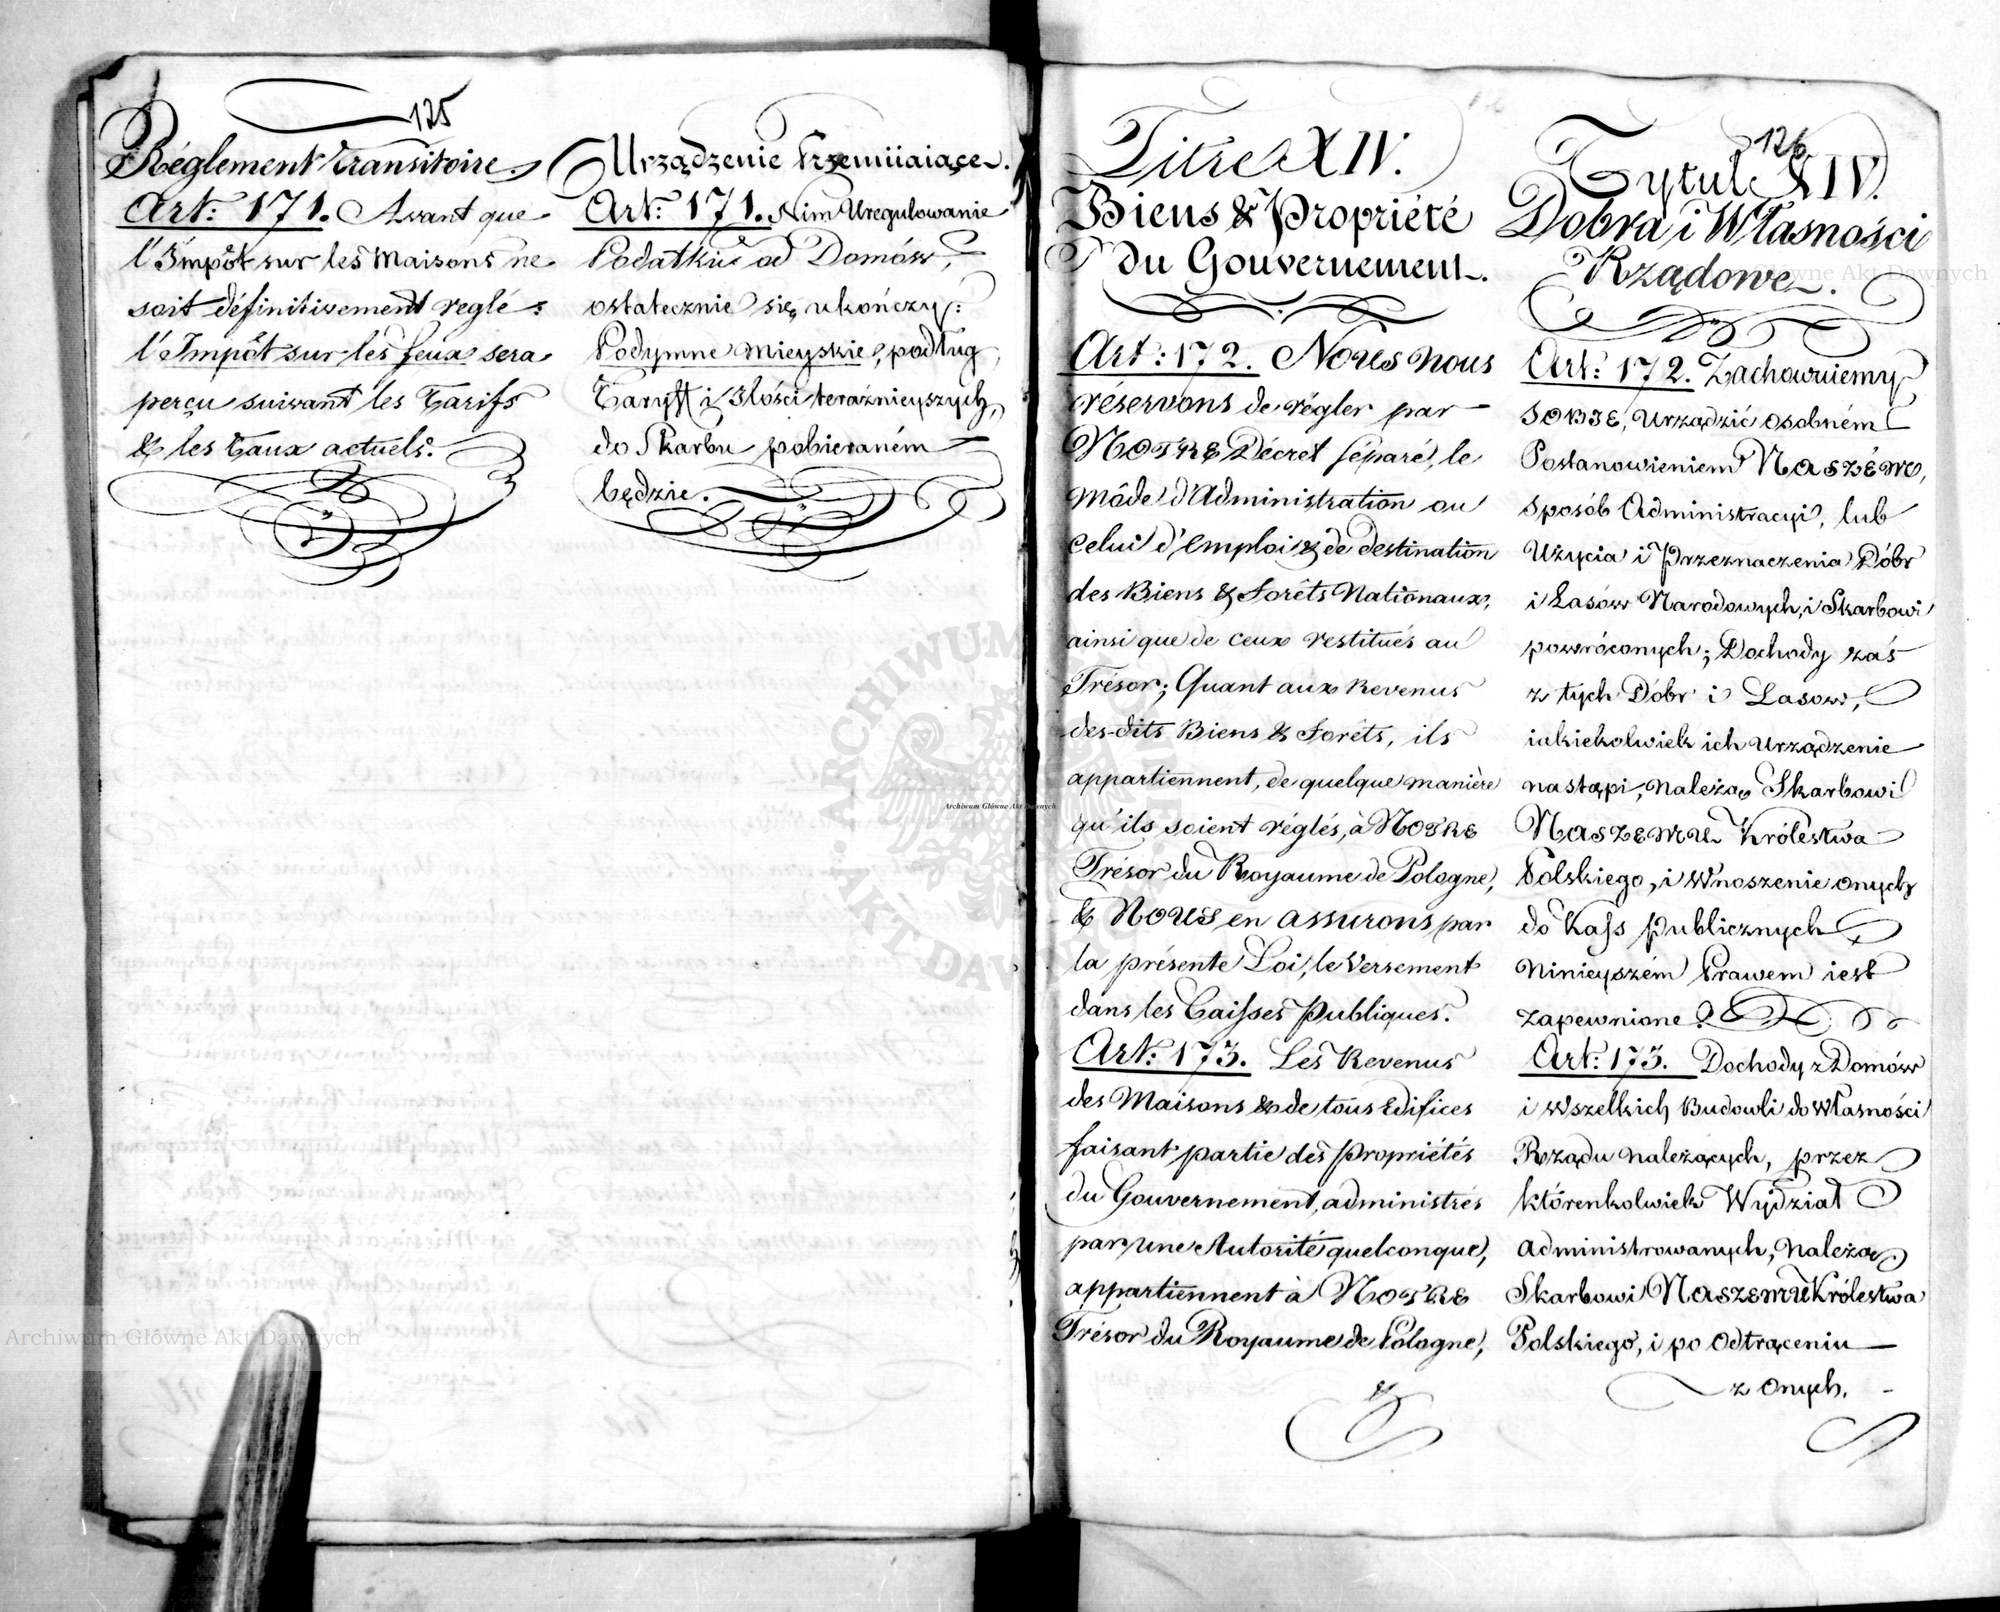 125
Réglement transitoire.
Art: 171. Avant que
l'Impôt sur les Maisons ne
soit définitivement reglé:
l'Impôt sur les feux sera
perçu suivant les Tarifs
& les Taux actuels.
Urządzenie Przemiiaiące.
Art: 171. Nim Uregulowanie
Podatku od Domów,
ostatecznie się ukończy:
Podymne Mieyskie, podług
Taryff i Ilości teraźnieyszych,
do Skarbu pobieraném
będzie.
Titre XIV.
Biens & Propriété
du Gouvernement.
Art: 172. NOUS nous
réservons de régler par
NOTRE Décret séparé, le
môde d'Administration ou
celui d'emploi & de destination
des Biens & Forêts Nationaux,
ainsi que de ceux restitués au
Trésor; Quant aux Revenus
des-dits Biens & Forêts, ils
appartiennent, de quelque manière
qu'ils soient réglés, à NOTRE
Trésor du Royaume de Pologne,
& NOUS en assurons par
la présente Loi, le Versement
dans les Caisses Publiques.
Art: 173. Les Revenus
des Maisons & de tous Edifices
faisant partie des Propriétés
du Gouvernement, administrés
par une Autorité quelconque,
appartiennent à NOTRE
Trésor du Royaume de Pologne,
&
126
Tytuł XIV.
Dobra i Własności
Rządowe.
Art: 172. Zachowuiemy
SOBIE, Urządzić osobném
Postanowieniem NASZÉM,
sposób Administracyi, lub
Użycia i Przeznaczenia Dóbr
i Lasów Narodowych, i Skarbowi
powróconych; Dochody zaś
z tych Dóbr i Lasow,
iakiekolwiek ich Urządzenie
nastąpi, należą Skarbowi
NASZEMU Królestwa
Polskiego, i Wnoszenie onych
do Kass Publicznych
Ninieyszém Prawem iest
zapewnione.
Art: 173. Dochody z Domów
i Wszelkich Budowli do Własności
Rządu należących, przez
którenkolwiek Wydział
Administrowanych, należą
Skarbowi NASZEMU Królestwa
Polskiego, i po Odtrąceniu
z Onych,
Archiwum Główne Akt Dawnych
ARCHIWUM GŁÓWNE AKT DAWNYCH
Archiwum Główne Akt Dawnych
Archiwum Główne Akt Dawnych